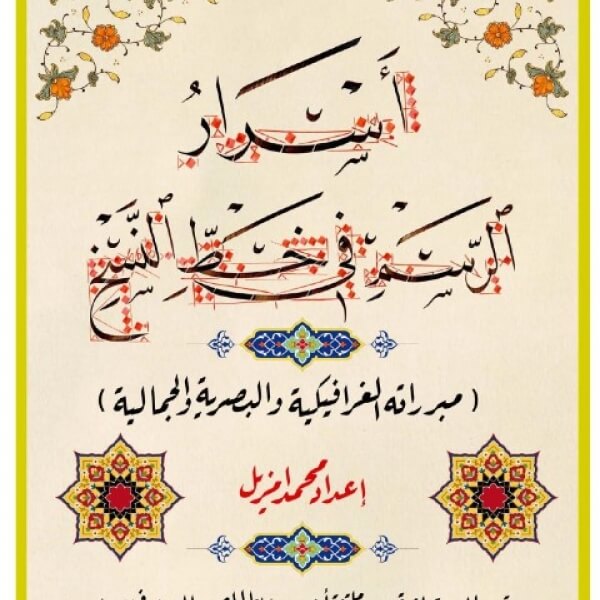 أَسْرَارُ
الرَّسْمِ فِي خَطِّ النَّسْخِ
( مبرراته الغرافيكية والبصرية والجمالية )
إعداد محمد امزيل